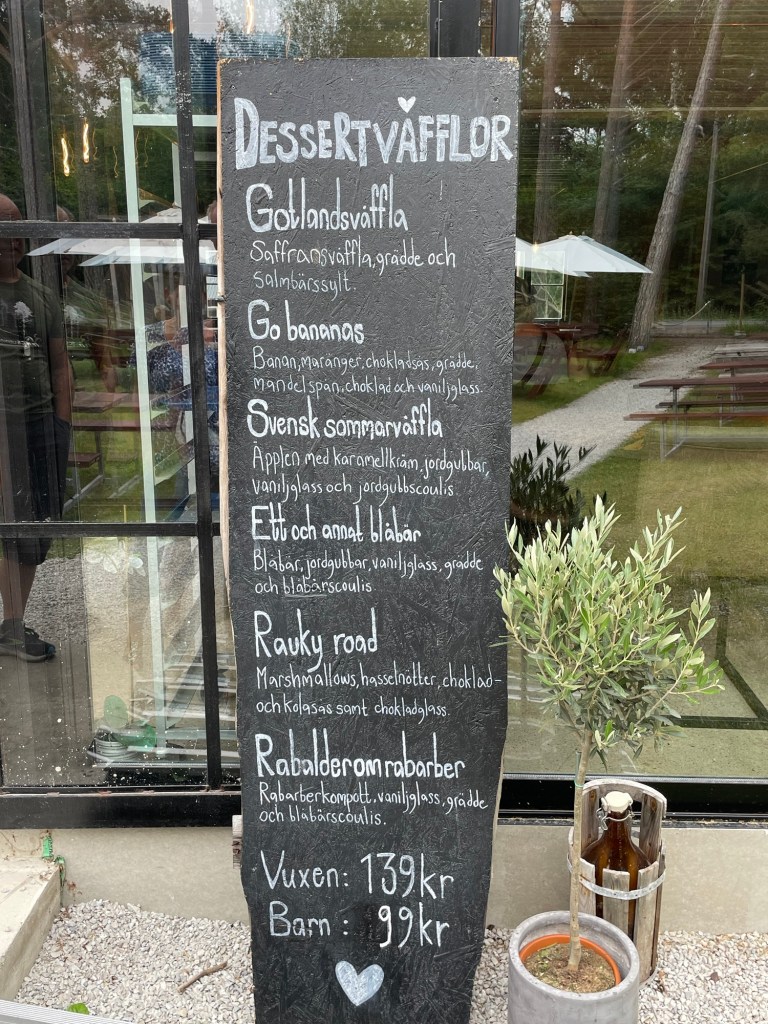 DESSERTVÅFFLOR
Gotlandsväffla
Saffransväffla, grädde och
salmbärssylt.
Go bananas
Banan, maränger, chokladsås, grädde,
mandelspån, choklad och vaniljglass.
Svensk sommarväffla
Äpplen med karamellkräm, jordgubbar,
vaniljglass och jordgubbscoulis
Ett och annat blåbär
Blåbär, jordgubbar, vaniljglass, grädde
och blåbärscoulis.
Rauky road
Marshmallows, hasselnötter, choklad-
och kolasås samt chokladglass.
Rabalder om rabarber
Rabarberkompott, vaniljglass, grädde
och blåbärscoulis.
Vuxen: 139kr
Barn: 99kr